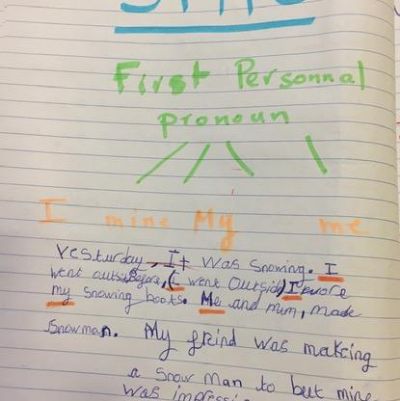 First Personnal
pronoun
I mine My me
Yesturday, It was snowing. I
went outside before, (I went outside) I wore
my snowing boots. Me and mum, made
snowman. My freind was making
a snow man to but mine
was